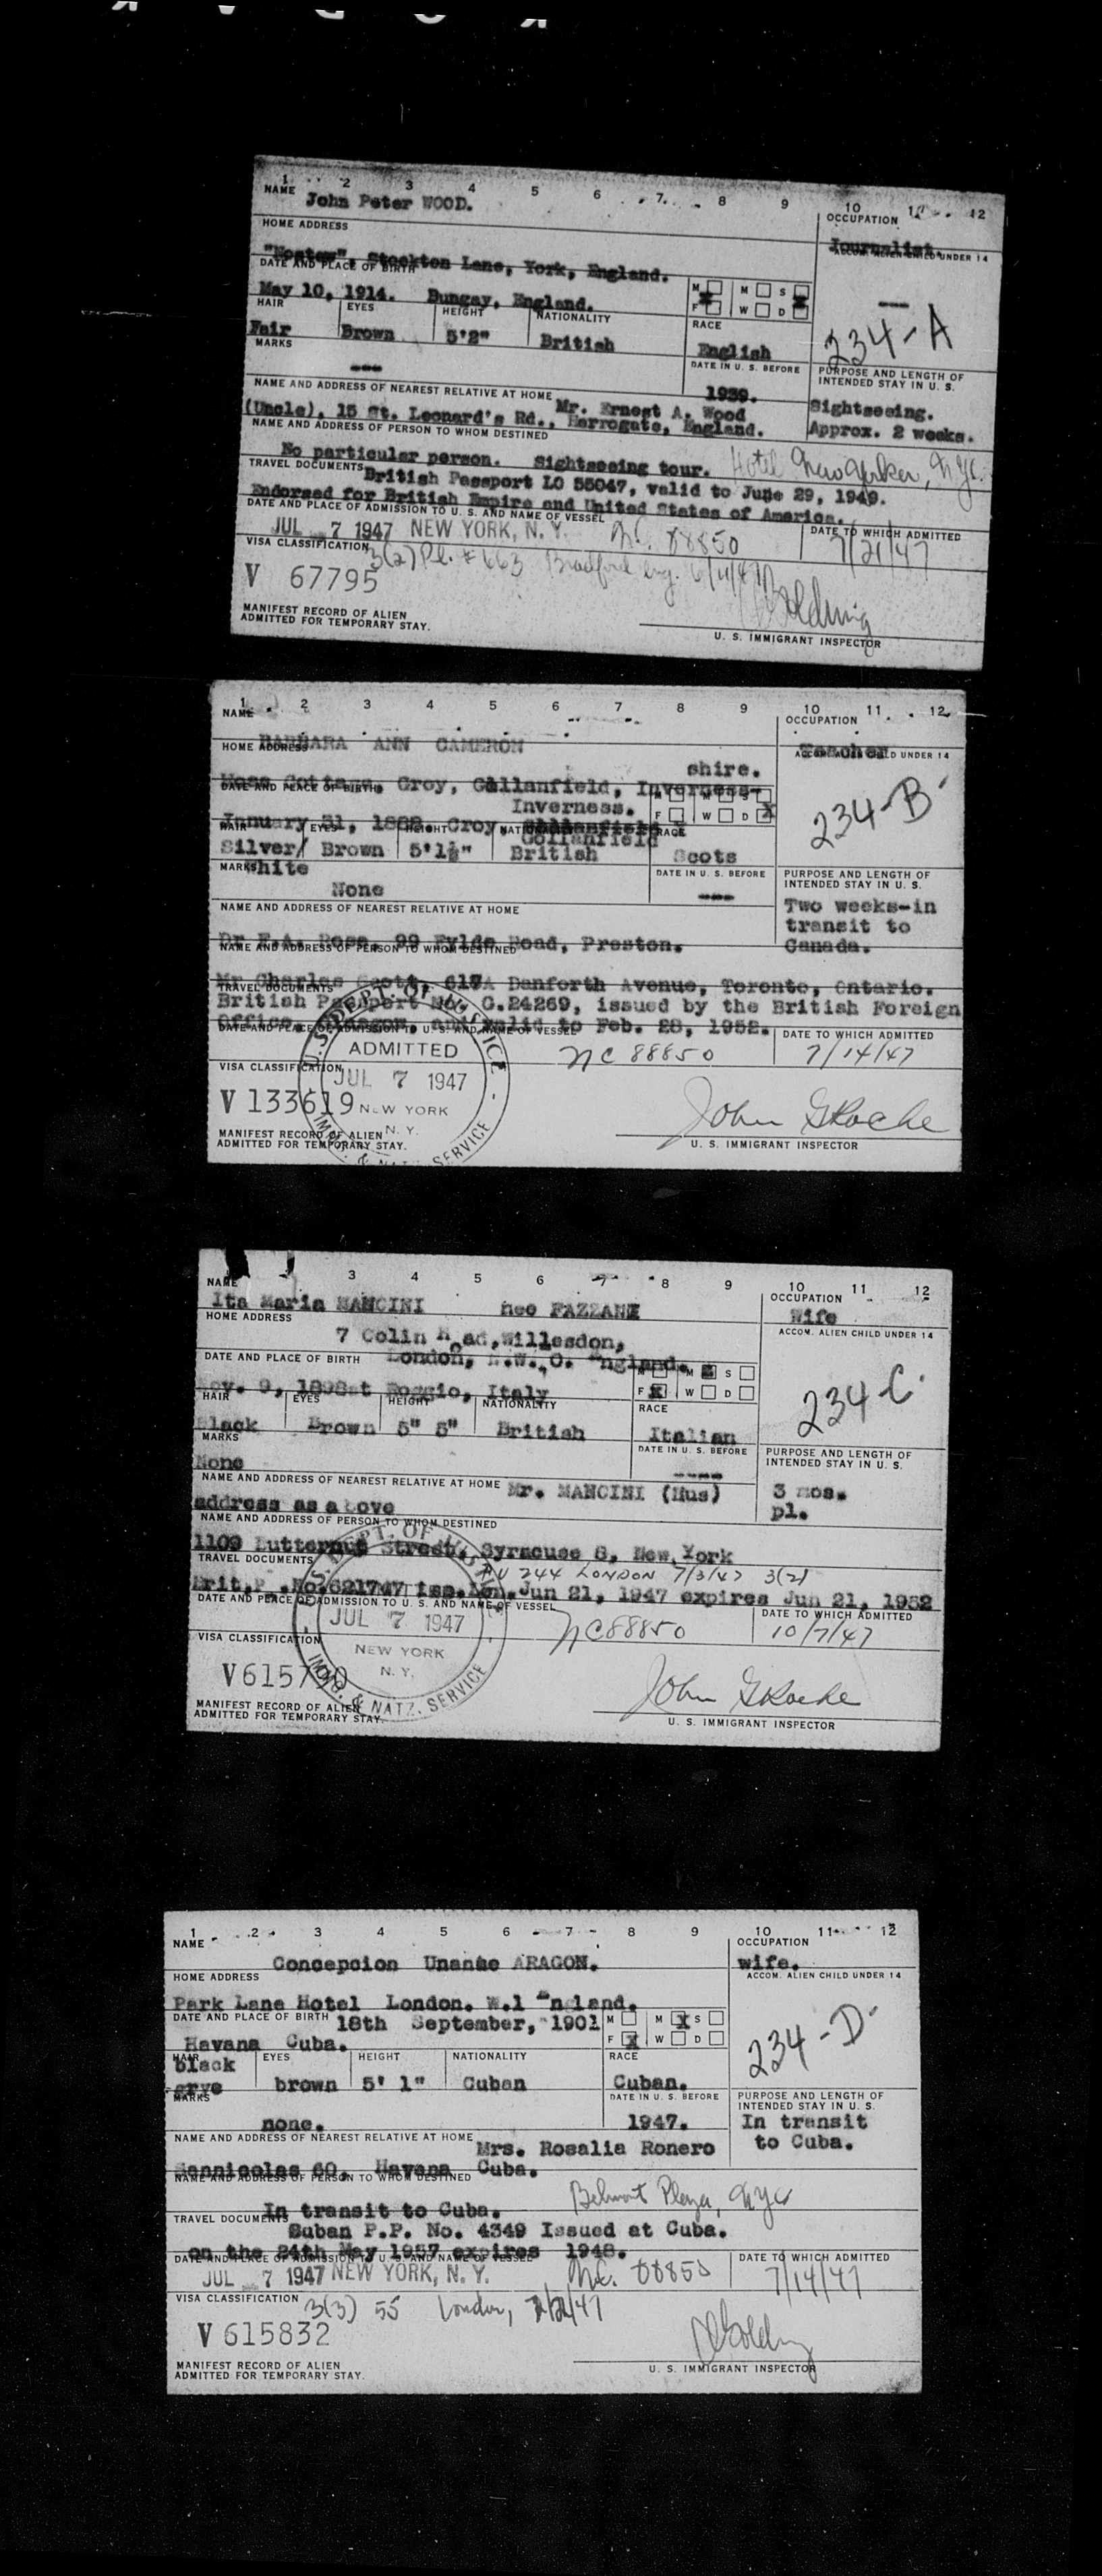 1 2 3 4 5 6 7 8 9 10 11 12
NAME John Peter WOOD.
OCCUPATION
Journalist.
HOME ADDRESS
ACCOM. ALIEN CHILD UNDER 14
Stockton Lane, York, England.
DATE AND PLACE OF BIRTH
May 10, 1914. Bungay, England.
M F M S W D
---
234-A
HAIR EYES HEIGHT NATIONALITY RACE
Fair Brown 5'2" British English
MARKS
---
DATE IN U. S. BEFORE
1939.
PURPOSE AND LENGTH OF INTENDED STAY IN U. S.
Sightseeing.
Approx. 2 weeks.
NAME AND ADDRESS OF NEAREST RELATIVE AT HOME Mr. Ernest A. Wood
(Uncle), 15 St. Leonard's Rd., Harrogate, England.
NAME AND ADDRESS OF PERSON TO WHOM DESTINED
No particular person. Sightseeing tour. Hotel New Yorker, NYC.
TRAVEL DOCUMENTS British Passport LO 55047, valid to June 29, 1949.
Endorsed for British Empire and United States of America.
DATE AND PLACE OF ADMISSION TO U. S. AND NAME OF VESSEL
JUL 7 1947 NEW YORK, N. Y. NC 88850
DATE TO WHICH ADMITTED
7/21/47
VISA CLASSIFICATION 3(2) Pl. #663 Bradford Eng.
V 67795
MANIFEST RECORD OF ALIEN
ADMITTED FOR TEMPORARY STAY.
U. S. IMMIGRANT INSPECTOR
1 2 3 4 5 6 7 8 9 10 11 12
NAME
OCCUPATION
BARBARA ANN CAMERON
Teacher
HOME ADDRESS
ACCOM. ALIEN CHILD UNDER 14
shire.
Moss Cottage, Croy, Gollanfield, Inverness-
DATE AND PLACE OF BIRTH
Inverness.
M F M S W D
234-B
January 31, 1882, Croy, Gollanfield
HAIR EYES HEIGHT NATIONALITY RACE
Silver/ Brown 5'1½" British Scots
MARKS white
None
DATE IN U. S. BEFORE
---
PURPOSE AND LENGTH OF INTENDED STAY IN U. S.
Two weeks-in
transit to
Canada.
NAME AND ADDRESS OF NEAREST RELATIVE AT HOME
Dr F.A. Rose, 99 Fylde Road, Preston.
NAME AND ADDRESS OF PERSON TO WHOM DESTINED
Mr Charles Scott, 617A Danforth Avenue, Toronto, Ontario.
TRAVEL DOCUMENTS
British Passport No. C.24269, issued by the British Foreign
Office, Glasgow, and valid to Feb. 28, 1952.
DATE AND PLACE OF ADMISSION TO U. S. AND NAME OF VESSEL
DATE TO WHICH ADMITTED
NC 88850 7/14/47
U. S. DEPT. OF JUSTICE
ADMITTED
JUL 7 1947
NEW YORK
N. Y.
IMM. & NATZ. SERVICE
VISA CLASSIFICATION
V 133619
John G Roche
MANIFEST RECORD OF ALIEN
ADMITTED FOR TEMPORARY STAY.
U. S. IMMIGRANT INSPECTOR
3 4 5 6 7 8 9 10 11 12
NAME
OCCUPATION
Ita Maria MANCINI nee FAZZANI
Wife
HOME ADDRESS
ACCOM. ALIEN CHILD UNDER 14
7 Colin Road, Willesdon,
DATE AND PLACE OF BIRTH London, N.W.,O. England.
M F M S W D
234-C
Nov. 9, 1898 at Poggio, Italy
HAIR EYES HEIGHT NATIONALITY RACE
Black Brown 5" 5" British Italian
MARKS
None
DATE IN U. S. BEFORE
----
PURPOSE AND LENGTH OF INTENDED STAY IN U. S.
3 mos.
pl.
NAME AND ADDRESS OF NEAREST RELATIVE AT HOME Mr. MANCINI (Hus)
address as above
NAME AND ADDRESS OF PERSON TO WHOM DESTINED
1109 Butternut Street, Syracuse 8, New York
TRAVEL DOCUMENTS
244 LONDON 7/3/47 3(2)
Brit.P .No.621747 iss.Lon.Jun 21, 1947 expires Jun 21, 1952
DATE AND PLACE OF ADMISSION TO U. S. AND NAME OF VESSEL
DATE TO WHICH ADMITTED
NC88850 10/7/47
U. S. DEPT. OF JUSTICE
JUL 7 1947
NEW YORK
N. Y.
IMM. & NATZ. SERVICE
VISA CLASSIFICATION
V615790
John G Roche
MANIFEST RECORD OF ALIEN
ADMITTED FOR TEMPORARY STAY.
U. S. IMMIGRANT INSPECTOR
1 2 3 4 5 6 7 8 9 10 11 12
NAME
OCCUPATION
Concepcion Unanue ARAGON.
wife.
HOME ADDRESS
ACCOM. ALIEN CHILD UNDER 14
Park Lane Hotel London. W.1 England.
DATE AND PLACE OF BIRTH 18th September, 1901
Havana Cuba.
M F M S W D
234-D
HAIR EYES HEIGHT NATIONALITY RACE
black
grye brown 5' 1" Cuban Cuban.
MARKS
none.
DATE IN U. S. BEFORE
1947.
PURPOSE AND LENGTH OF INTENDED STAY IN U. S.
In transit
to Cuba.
NAME AND ADDRESS OF NEAREST RELATIVE AT HOME Mrs. Rosalia Ronero
Sannicolas 60, Havana Cuba.
NAME AND ADDRESS OF PERSON TO WHOM DESTINED
In transit to Cuba. Belmont Plaza, NYC
TRAVEL DOCUMENTS
Suban P.P. No. 4349 Issued at Cuba.
on the 24th May 1937 expires 1948.
DATE AND PLACE OF ADMISSION TO U. S. AND NAME OF VESSEL
DATE TO WHICH ADMITTED
JUL 7 1947 NEW YORK, N. Y. NC. 88850 7/14/47
VISA CLASSIFICATION 3(3) 55 London,
V 615832
MANIFEST RECORD OF ALIEN
ADMITTED FOR TEMPORARY STAY.
U. S. IMMIGRANT INSPECTOR